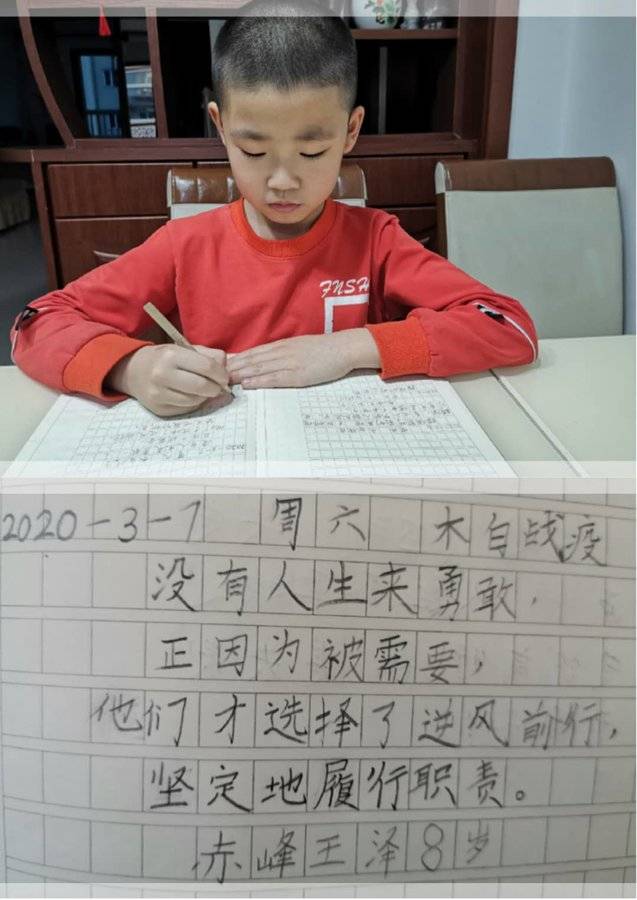 FNSH
2020-3-7 周六 木自战疫
没有人生来勇敢,
正因为被需要,
他们才选择了逆风前行,
坚定地履行职责。
赤峰王泽8岁